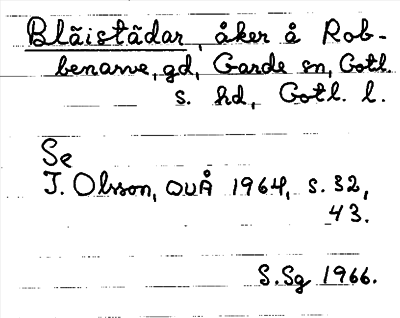 Blãistãdar, åker å Rob-
benarve, gd, Garde sn, Gotl.
s. hd, Gotl. l.
Se
I. Olsson, OUÅ 1964, s. 32,
43.
S.Sg 1966.